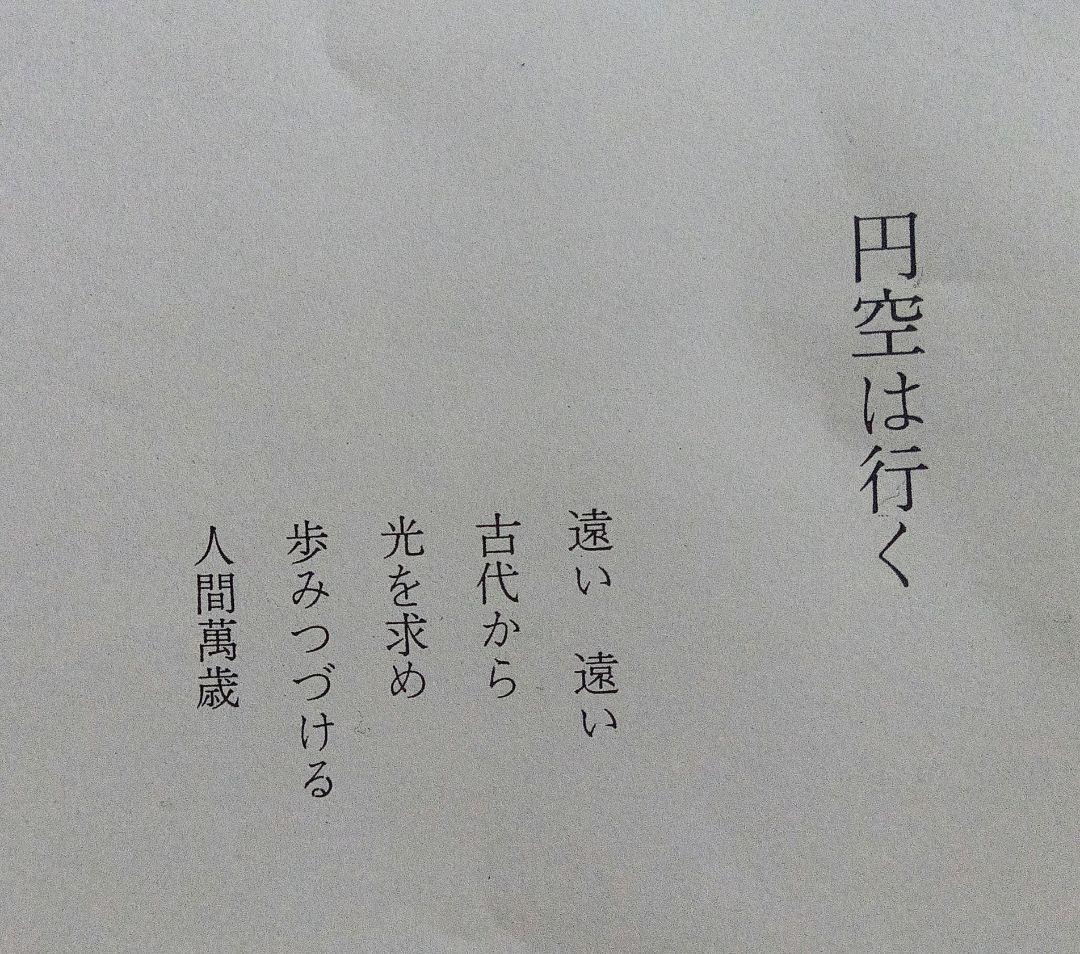 円空は行く
遠い　遠い
古代から
光を求め
歩みつづける
人間萬歳